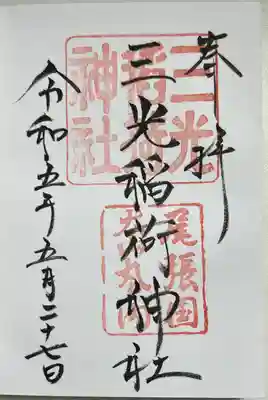 奉拝
三光稲荷神社
令和五年五月二十七日
三光稲荷神社
尾張国犬山丸の内